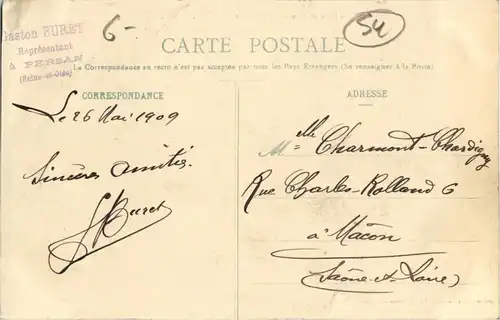 Gaston BURET
Représentant
à PERSAN
(Seine-et-Oise)
6-
54
CARTE POSTALE
La Correspondance au recto n'est pas acceptée par tous les Pays Etrangers (Se renseigner à la Poste)
CORRESPONDANCE
Le 26 Mai 1909
Sincères amitiés.
GBuret
ADRESSE
M lle Charmont-Chardigny
Rue Charles-Rolland 6
à Mâcon
(Saône-et-Loire)